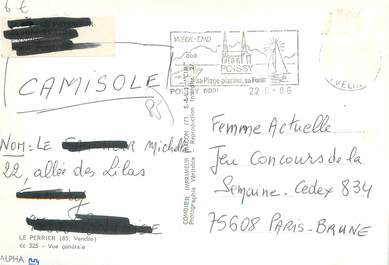 6€
CAMISOLE
NOM: LE Michelle
22, allée des Lilas
LE PERRIER (85. Vendée)
éc 325 - Vue générale
ALPHA
COMBIER IMPRIMEUR MACON
Photographie Véritable - Reproduction Interdite
WEEK-END
POISSY
sa Place piscine, sa Forêt
POISSY PPAL 22-9-86
Femme Actuelle
Jeu Concours de la
Semaine - Cedex 834
75608 PARIS-BRUNE